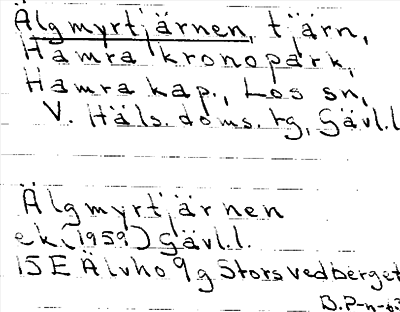 Älgmyrtjärnen, tjärn,
Hamra kronopark,
Hamra kap., Los sn,
V. Häls. doms. tg, Gävl.l
Älgmyrtjärnen
ek (1959) Gävl.l.
15E Älvho 9g Storsvedberget
B.P-n-63